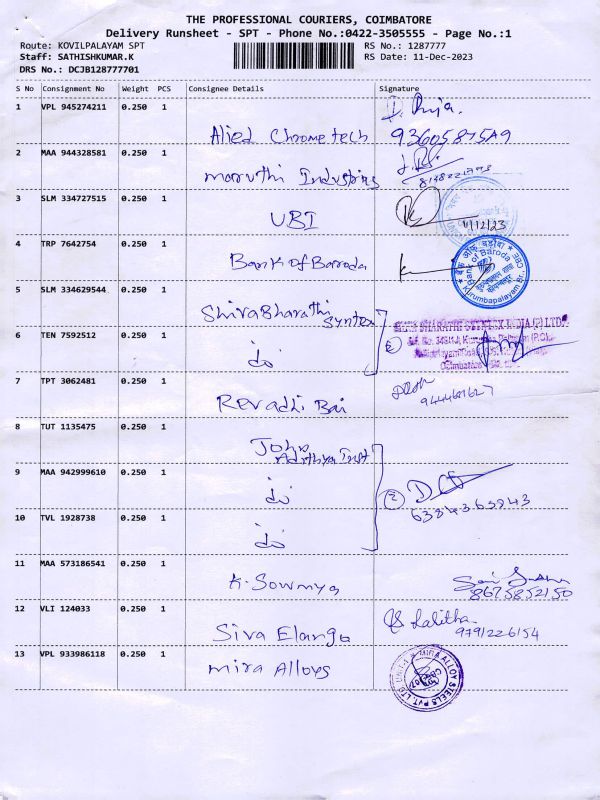 THE PROFESSIONAL COURIERS, COIMBATORE
Delivery Runsheet - SPT - Phone No.:0422-3505555 - Page No.:1
Route: KOVILPALAYAM SPT
RS No.: 1287777
Staff: SATHISHKUMAR.K
RS Date: 11-Dec-2023
DRS No.: DCJB128777701
S No Consignment No Weight PCS Consignee Details Signature
1 VPL 945274211 0.250 1 Alied Chrometech
2 MAA 944328581 0.250 1 maruthi Industries
3 SLM 334727515 0.250 1 UBI 11/12/23
4 TRP 7642754 0.250 1 Bank of Baroda
Bank of Baroda
Kurumbapalayam Br.,
5 SLM 334629544 0.250 1 ShivaBharathi Syntex
6 TEN 7592512 0.250 1 do 2
7 TPT 3062481 0.250 1 Revadhi Bai
8 TUT 1135475 0.250 1 John Adithya Trust
9 MAA 942999610 0.250 1 do 2
10 TVL 1928738 0.250 1 do
11 MAA 573186541 0.250 1 K. Sowmya 8675852150
12 VLI 124033 0.250 1 Siva Elango Lalitha 9791226154
13 VPL 933986118 0.250 1 Mira Alloys
MIRA ALLOY STEELS PVT. LTD